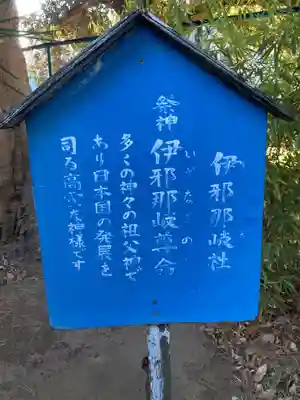 伊邪那岐社
祭神 伊邪那岐尊命
いざなぎの
多くの神々の祖父神で
あり日本国の発展を
司る高貴な神様です